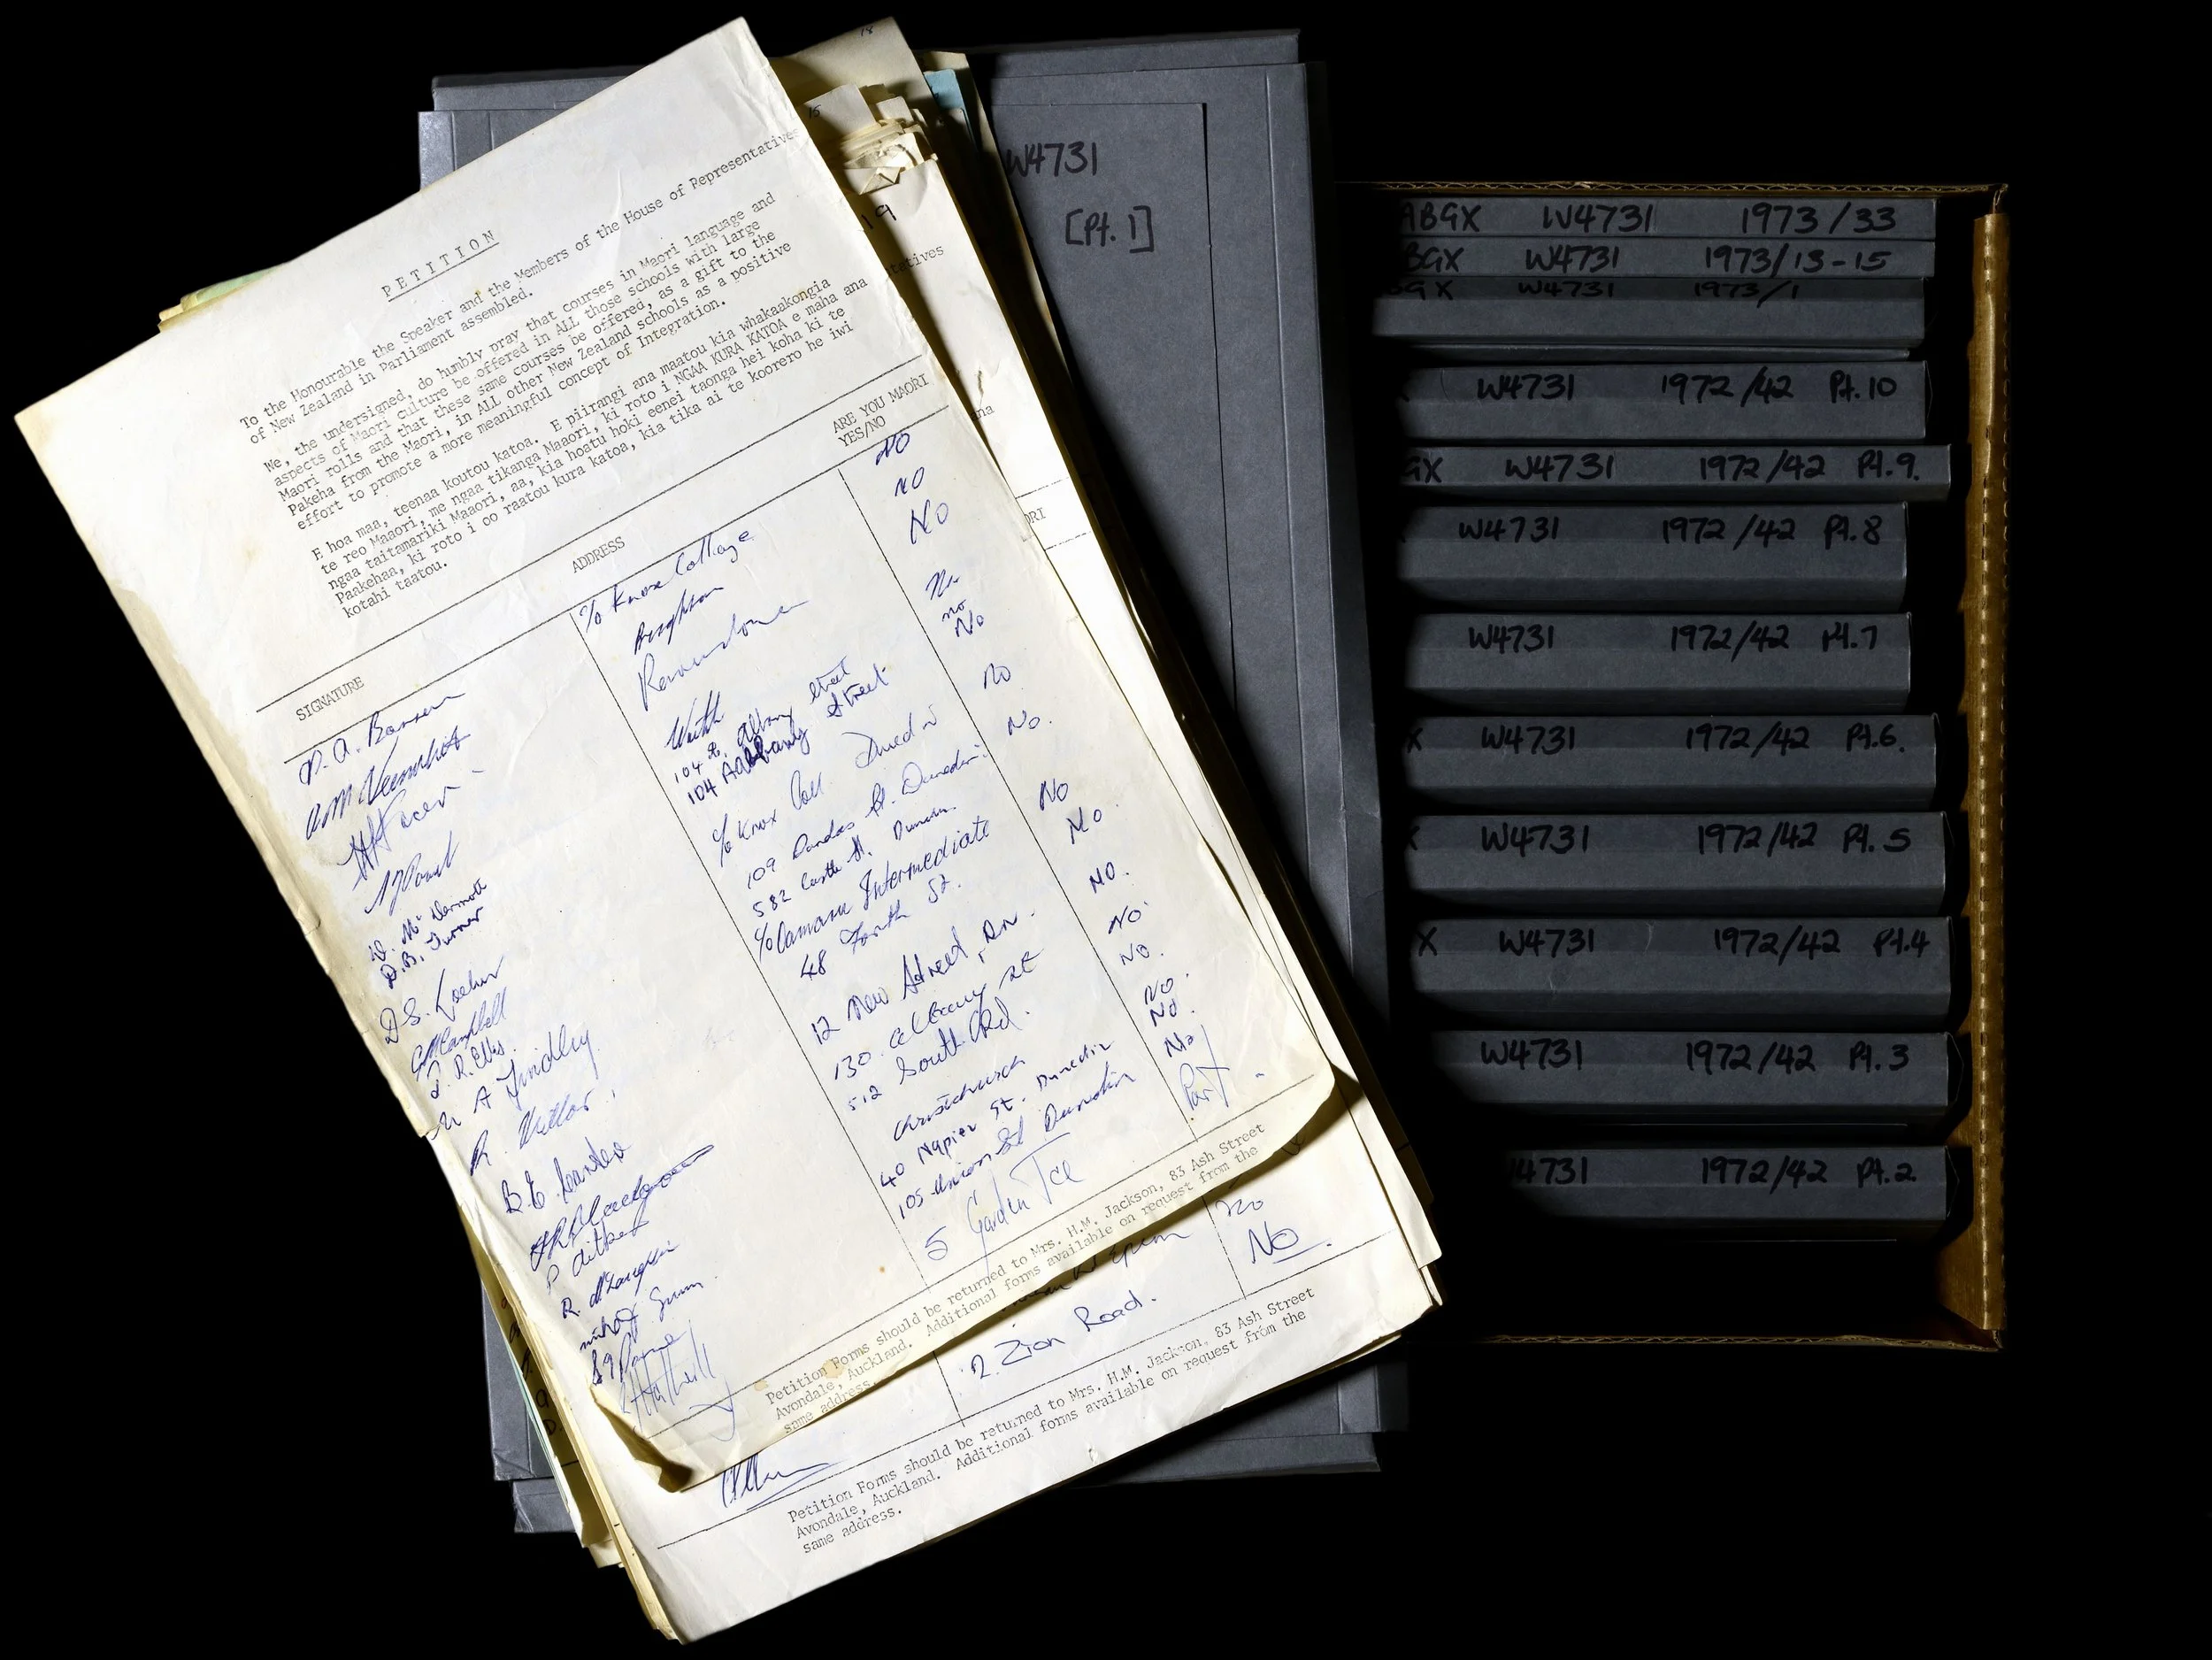 PETITION
To the Honourable the Speaker and the Members of the House of Representatives
of New Zealand in Parliament assembled.
We, the undersigned, do humbly pray that courses in Maori language and
aspects of Maori culture be offered in ALL those schools with large
Maori rolls and that these same courses be offered, as a gift to the
Pakeha from the Maori, in ALL other New Zealand schools as a positive
effort to promote a more meaningful concept of Integration.
E hoa maa, teenaa koutou katoa. E piirangi ana maatou kia whakaakongia
te reo Maaori, me ngaa tikanga Maaori, ki roto i NGAA KURA KATOA e maha ana
ngaa taitamariki Maaori, aa, kia hoatu hoki eenei taonga hei koha ki te
Paakehaa, ki roto i oo raatou kura katoa, kia tika ai te koorero he iwi
kotahi taatou.
SIGNATURE ADDRESS ARE YOU MAORI
YES/NO
c/o Knox College NO
Brighton NO
No
No
D. McDermott 104 Albany Street no
D.B. Turner 104 Albany Street No
D.S. c/o Knox Coll Dunedin No
Campbell 109 Dundas St. Dunedin. No.
J. R. Ellis 582 Castle St. Dunedin No
A Findlay c/o Oamaru Intermediate No
R. 48 Forth St. NO.
12 New Street, Dn. NO
130 Albany St NO.
P Aitken 512 South Rd. NO
R. Christchurch NO
40 Napier St. Dunedin No
105 Union St Dunedin
5 Garden Tce Part
Petition Forms should be returned to Mrs. H.M. Jackson, 83 Ash Street
Avondale, Auckland. Additional forms available on request from the
same address.
2 Zion Road. No
Petition Forms should be returned to Mrs. H.M. Jackson, 83 Ash Street
Avondale, Auckland. Additional forms available on request from the
same address.
18
15
19
tatives
ana
ORI
W4731
[Pt. 1]
ABGX W4731 1973/33
BGX W4731 1973/13-15
GX W4731 1973/1
W4731 1972/42 Pt.10
GX W4731 1972/42 Pt.9.
W4731 1972/42 Pt.8
W4731 1972/42 Pt.7
X W4731 1972/42 Pt.6.
X W4731 1972/42 Pt.5
X W4731 1972/42 Pt.4
W4731 1972/42 Pt.3
W4731 1972/42 Pt.2.